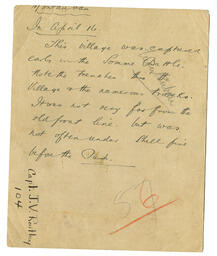 In April 16.
This village was captured
early in the Somme Battle.
Note the trenches in the
village & the numerous tracks.
It was not very far from the
old front line, but was
not often under shell fire
before the Push.
Capt. J.V.
104